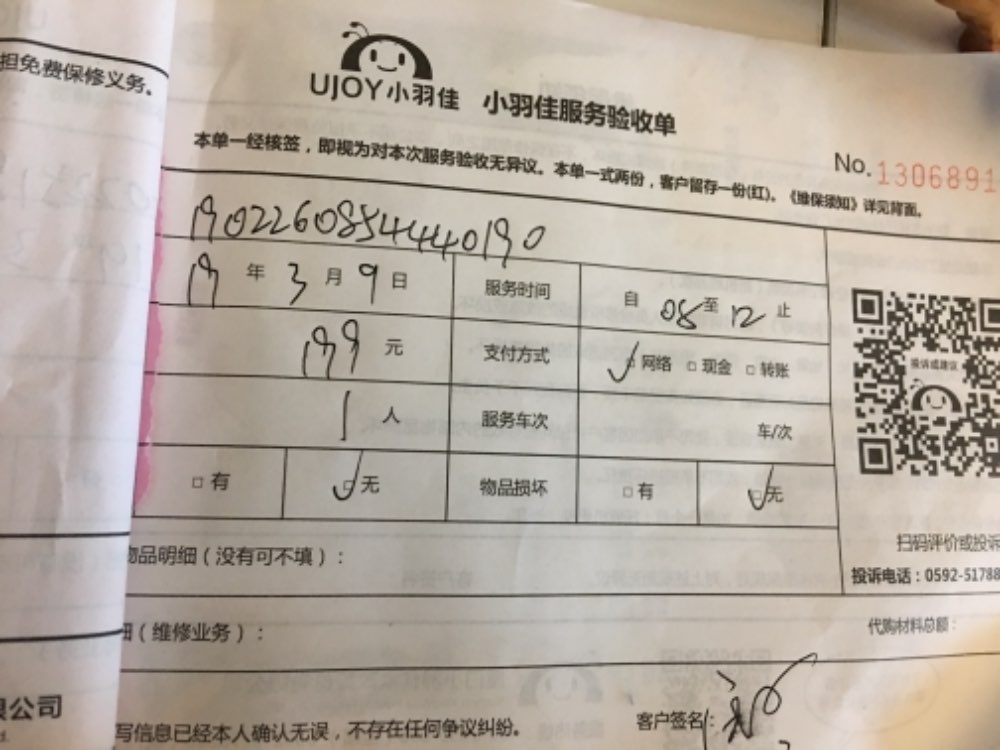 担免费保修义务。
UJOY小羽佳 小羽佳服务验收单
本单一经核签，即视为对本次服务验收无异议。本单一式两份，客户留存一份(红)。《维保须知》详见背面。
No.1306891
1902260854440190
19年3月9日 服务时间 自08至12止
199元 支付方式 网络 现金 转账
1人 服务车次 车/次
有 无 物品损坏 有 无
投诉或建议
扫码评价或投诉
投诉电话：0592-51788
物品明细（没有可不填）：
代购材料总额：
（维修业务）：
限公司
写信息已经本人确认无误，不存在任何争议纠纷。
客户签名：